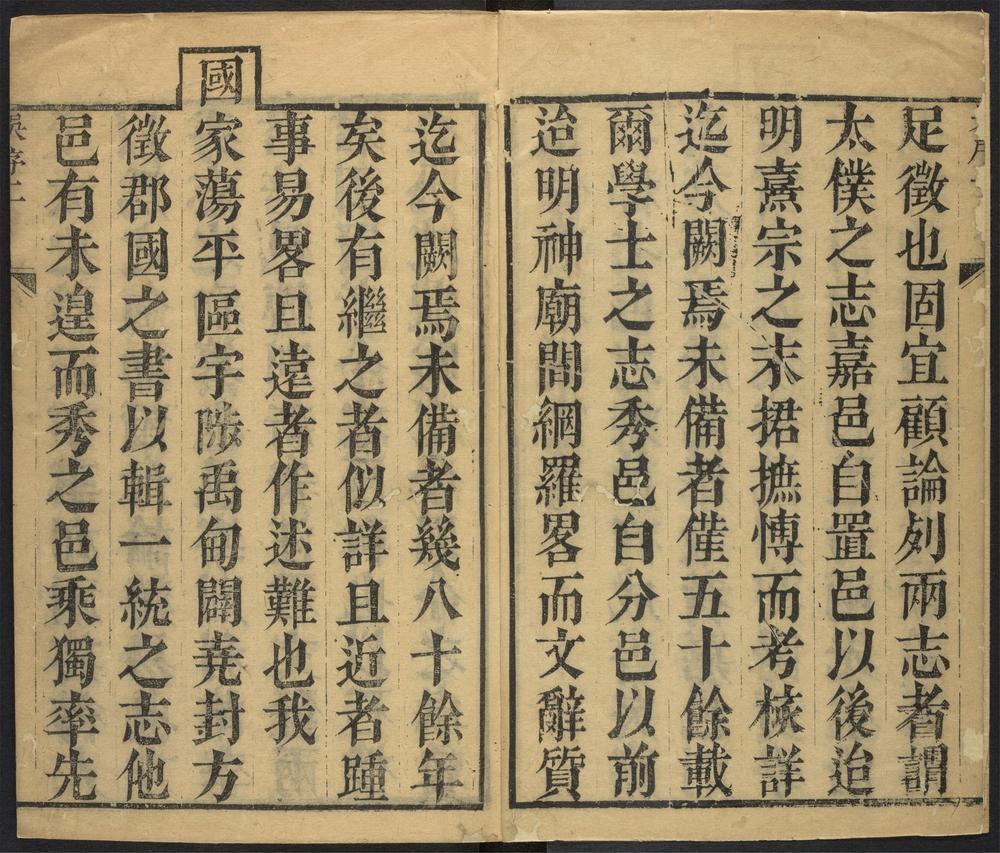 足徵也固宜顧論列兩志者謂
太僕之志嘉邑自置邑以後迨
明熹宗之末捃摭愽而考核詳
迄今闕焉未備者僅五十餘載
爾學士之志秀邑自分邑以前
迨明神廟間網羅畧而文辭質
迄今闕焉未備者幾八十餘年
矣後有繼之者似詳且近者踵
事易畧且遠者作述難也我
國
家蕩平區宇陟禹甸闢堯封方
徵郡國之書以輯一統之志他
邑有未遑而秀之邑乘獨率先
序二